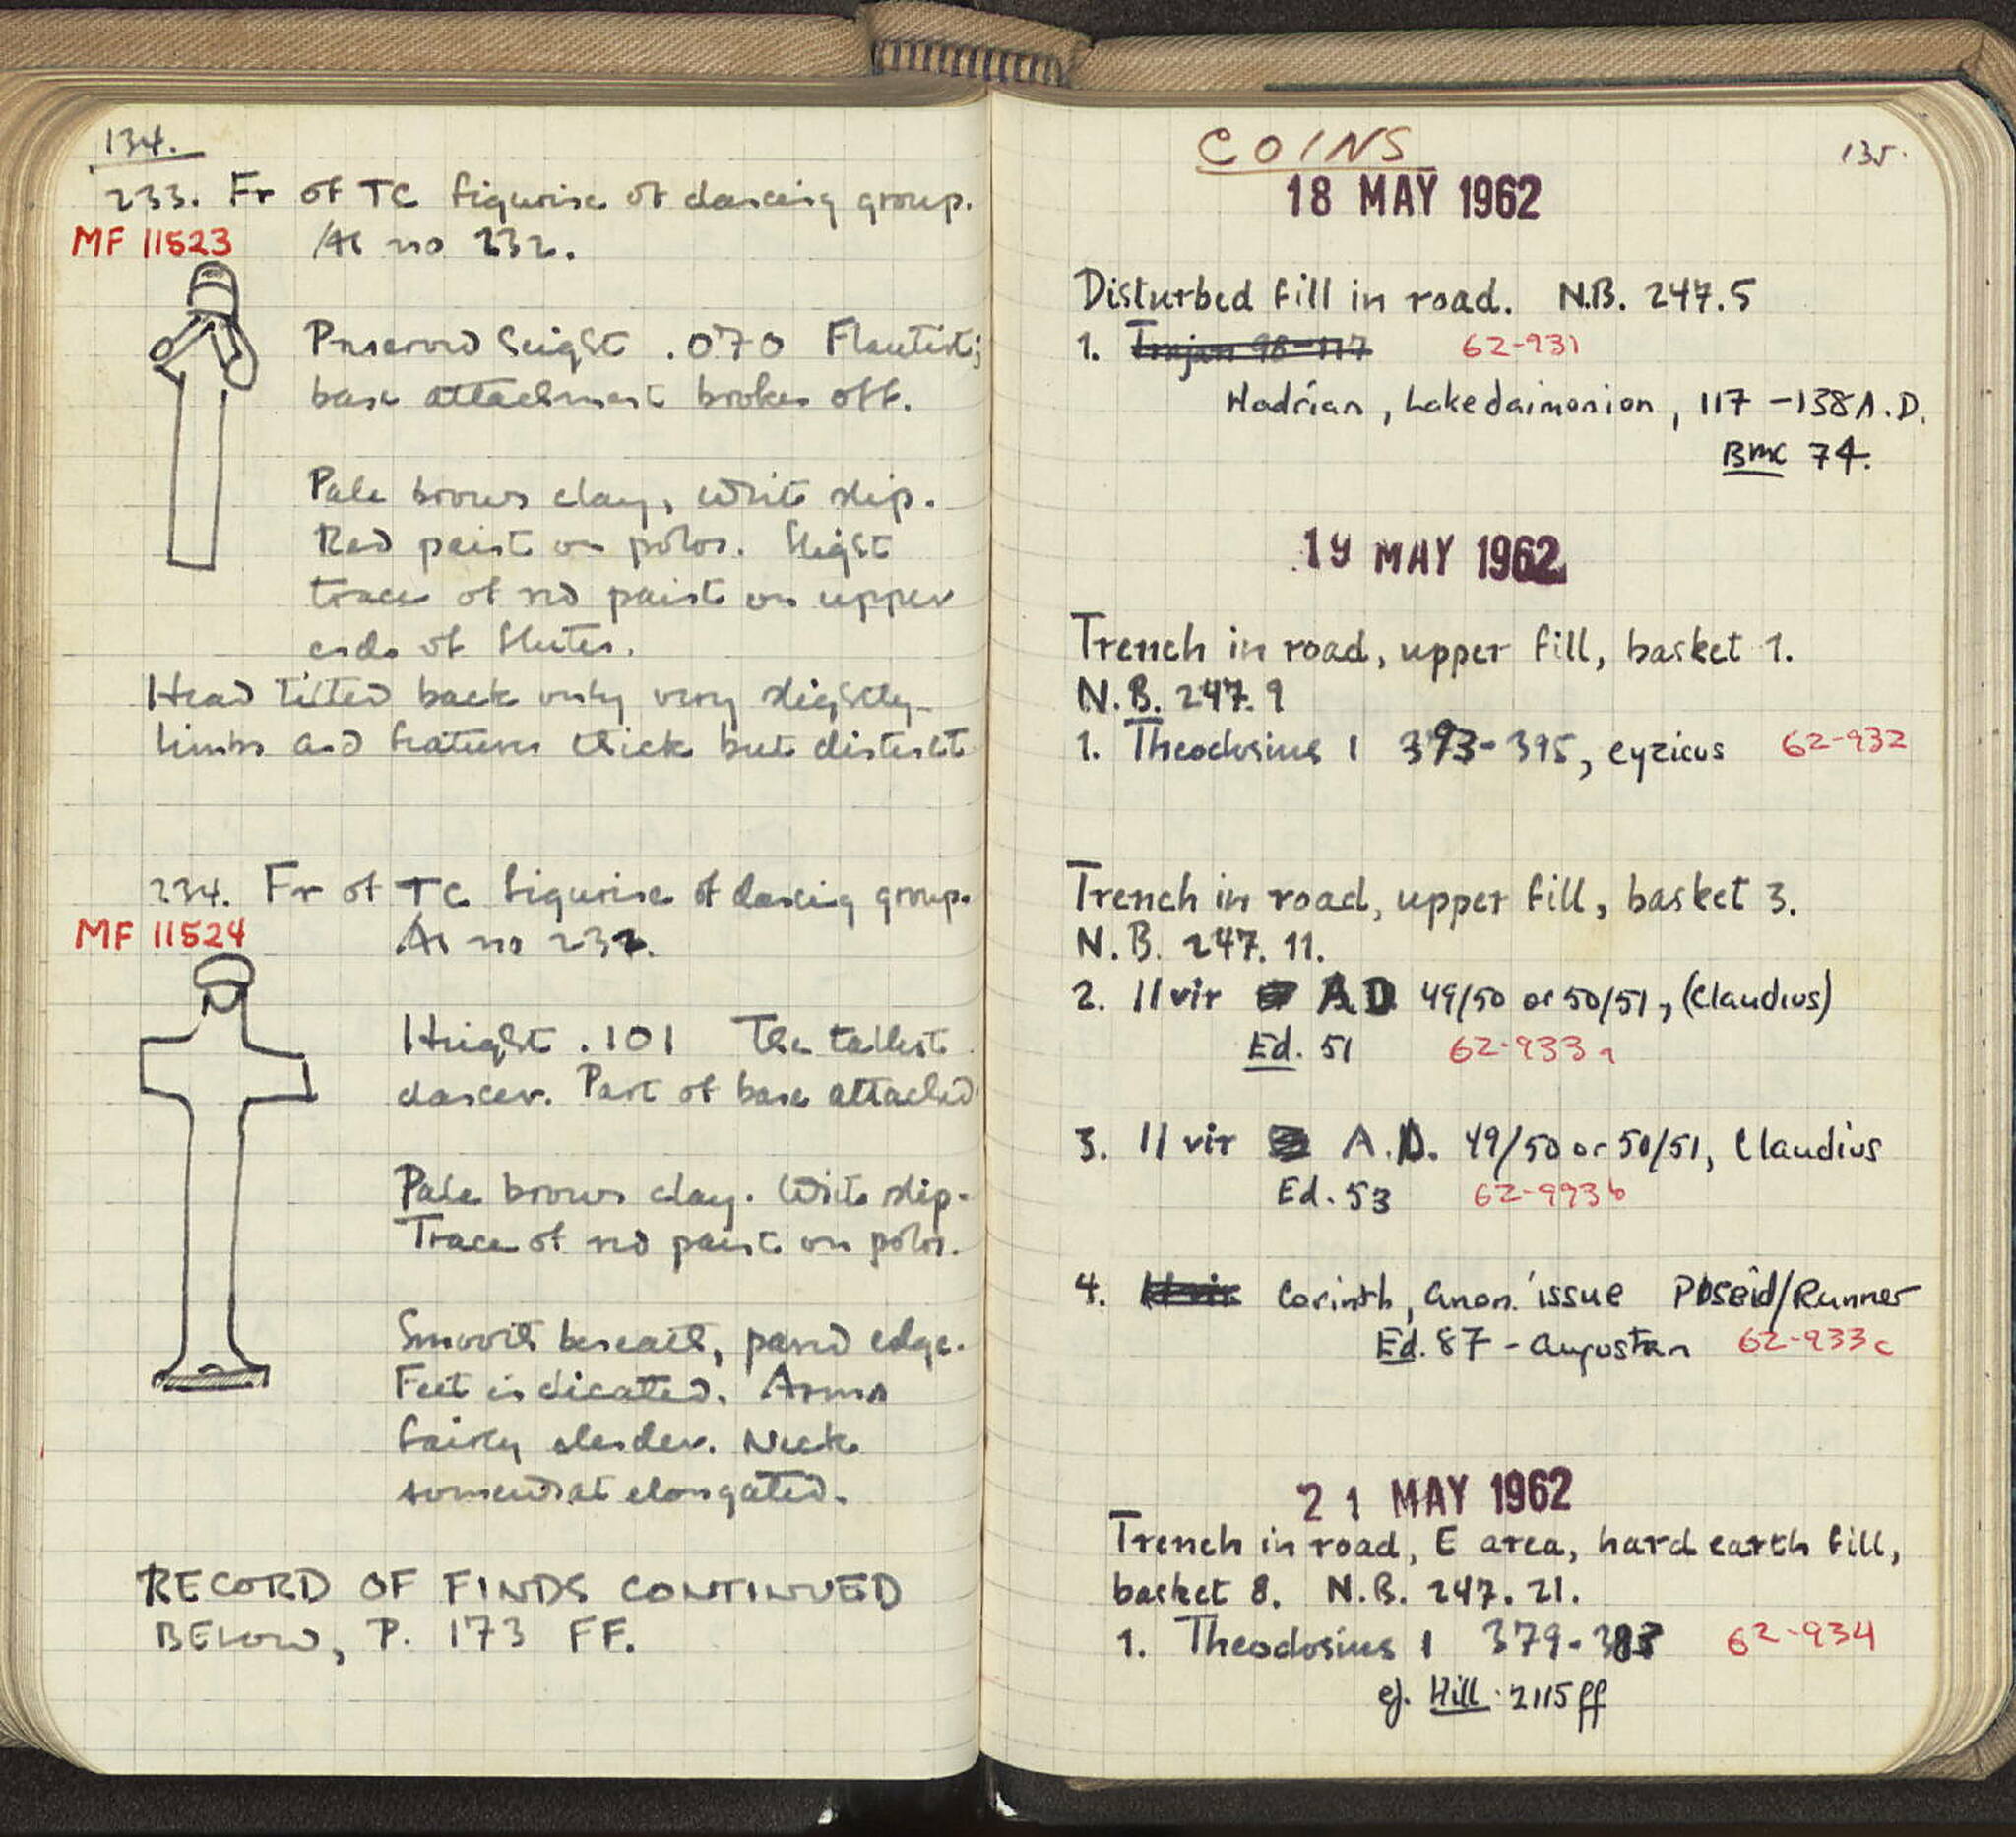 134.
233. Fr of TC figurine of dancing group.
MF 11523 As no 232.
Preserved height .070 Flautist;
base attachment broken off.
Pale brown clay, white slip.
Red paint on polos. Slight
traces of red paint on upper
ends of flutes.
Head tilted back only very slightly
limbs and features thick but distinct
234. Fr of TC figurine of dancing group.
MF 11524 As no 232.
Height .101 The tallest
dancer. Part of base attached
Pale brown clay. White slip.
Trace of red paint on polos.
Smooth beneath, pared edge.
Feet indicated. Arms
fairly slender. Neck
somewhat elongated.
RECORD OF FINDS CONTINUED
BELOW, P. 173 FF.
COINS 135.
18 MAY 1962
Disturbed fill in road. N.B. 247.5
1. Trajan 98-117 62-931
Hadrian, Lakedaimonion, 117-138 A.D.
BMC 74.
19 MAY 1962
Trench in road, upper fill, basket 1.
N.B. 247.9
1. Theodosius I 393-395, Cyzicus 62-932
Trench in road, upper fill, basket 3.
N.B. 247.11.
2. II vir AD 49/50 or 50/51, (Claudius)
Ed. 51 62-933a
3. II vir A.D. 49/50 or 50/51, Claudius
Ed. 53 62-993b
4. II vir Corinth, anon. issue Poseid/Runner
Ed. 87 - Augustan 62-933c
21 MAY 1962
Trench in road, E area, hard earth fill,
basket 8. N.B. 247.21.
1. Theodosius I 379-383 62-934
cf. Hill 2115 ff